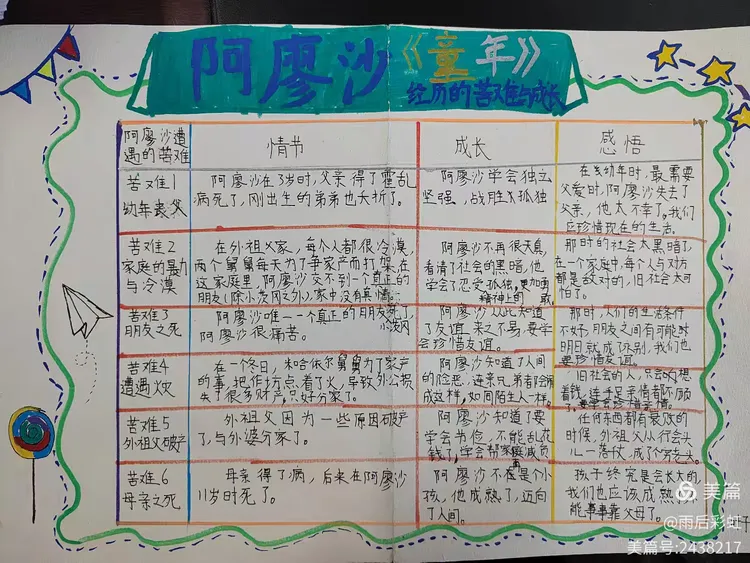 阿廖沙《童年》
经历的苦难与成长
阿廖沙遭
遇的苦难
情节
成长
感悟
苦难1
幼年丧父
阿廖沙在3岁时,父亲得了霍乱
病死了,刚出生的弟弟也夭折了。
阿廖沙学会独立
坚强,战胜
孤独
在幼年时,最需要
父爱时,阿廖沙失去了
父亲,他太不幸了。我们
应珍惜现在的生活。
苦难2
家庭的暴力
与冷漠
在外祖父家,每个人都很冷漠,
两个舅舅每天为了争家产而打架,在
这家庭里,阿廖沙交不到一个真正的
朋友(除小茨冈之外),家中没有真情。
阿廖沙不再很天真,
看清了社会的黑暗,他
学会了忍受孤独,更加勇敢
精神上的
那时的社会太黑暗了,
在一个家庭中,每个人与对方
都是敌对的,旧社会太可
怕了。
苦难3
朋友之死
阿廖沙唯一一个真正的朋友死了,
小茨冈
阿廖沙很痛苦。
阿廖沙从此知道
了友谊,来之不易,要学
会珍惜友谊。
那时,人们的生活条件
不好,朋友之间有可能到
明日就成了永别,我们也
要珍惜友谊。
苦难4
遭遇火灾
在一个冬日,米哈依尔舅舅为了家产
的事,把作坊点着了火,导致外公损
失了很多财产,只好分家了。
阿廖沙知道了人间
的险恶,连亲兄弟都
成这样,如同陌生人一样。
旧社会的人,只会幻想
着钱,连手足亲情都不顾
了,要学会珍惜亲情。
苦难5
外祖父破产
外祖父因为一些原因破产
了,与外婆分家了。
阿廖沙知道了要
学会节俭,不能乱花
钱了,学会帮家庭减负
在何东西都有衰败的
时候,外祖父从行会头
儿一落
成了个穷老头。
苦难6
母亲之死
母亲得了病,后来在阿廖沙
11岁时死了。
阿廖沙不在是个小
孩,他成熟了,迈向
了人间。
孩子终究是会长大的,
我们也应该成熟,
能事事靠父母了。
美篇
@雨后彩虹
美篇号:2438217